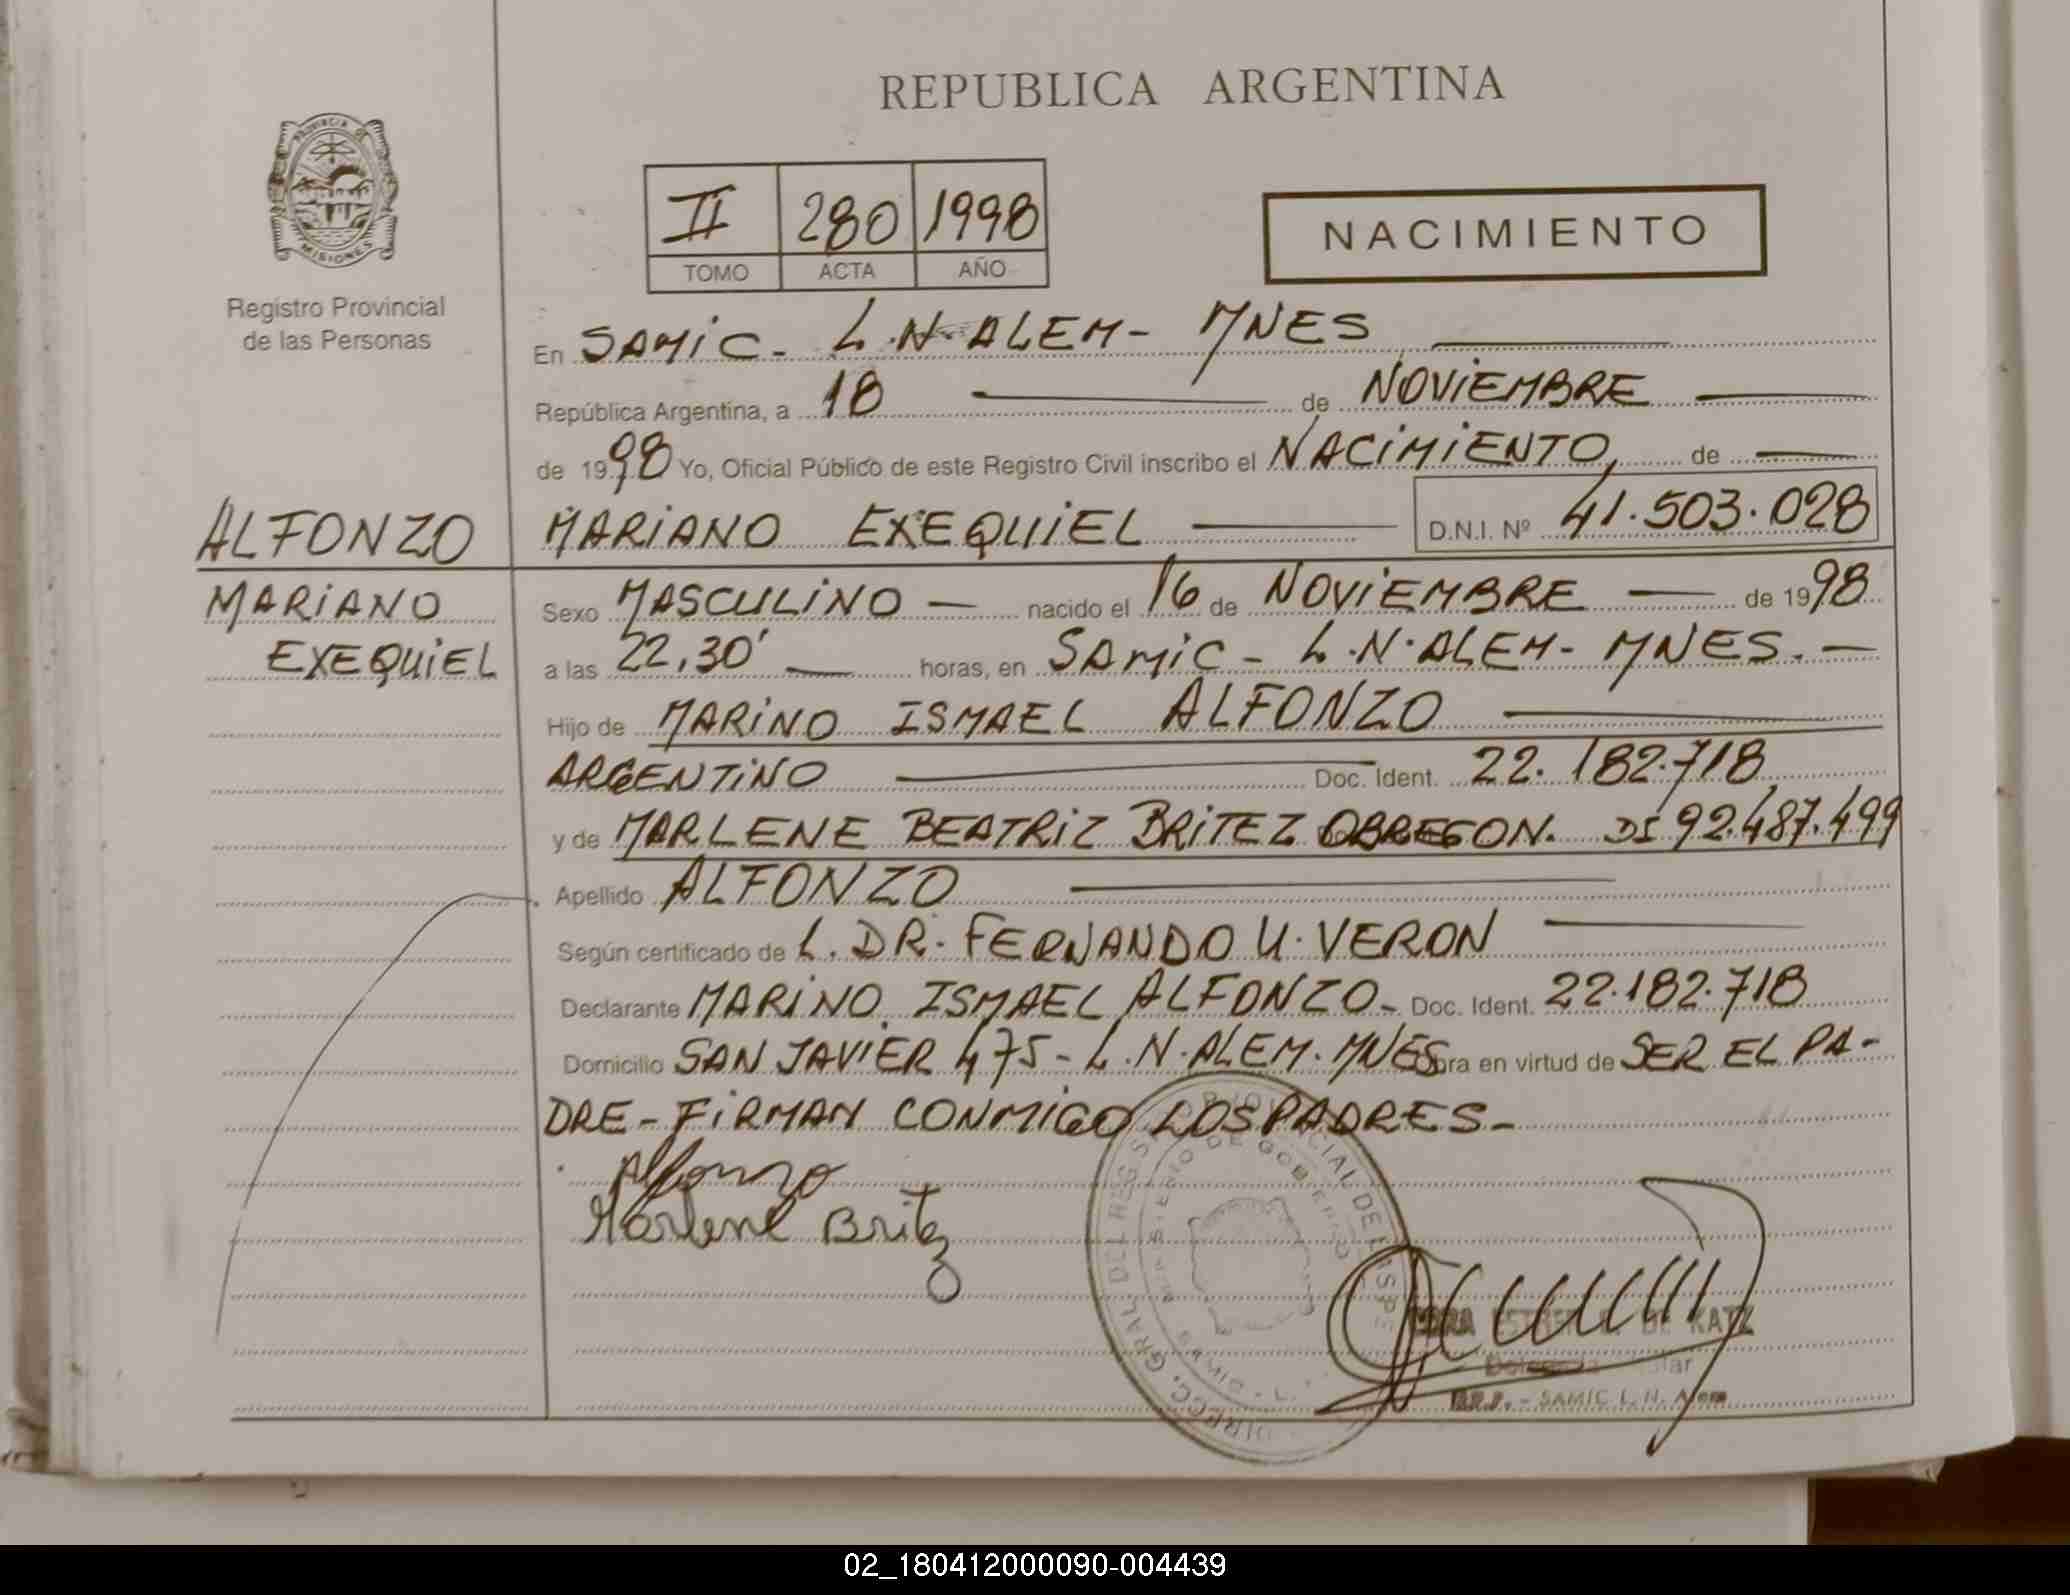 REPUBLICA ARGENTINA
PROVINCIA DE
MISIONES
Registro Provincial
de las Personas
II 280 1998
TOMO ACTA AÑO
NACIMIENTO
En SAMIC - L.N. ALEM - MNES
República Argentina, a 18 de NOVIEMBRE
de 1998 Yo, Oficial Público de este Registro Civil inscribo el NACIMIENTO, de
ALFONZO
MARIANO EXEQUIEL D.N.I. Nº 41.503.028
MARIANO
EXEQUIEL
Sexo MASCULINO nacido el 16 de NOVIEMBRE de 1998
a las 22,30' horas, en SAMIC - L.N. ALEM - MNES.
Hijo de MARINO ISMAEL ALFONZO
ARGENTINO Doc. Ident. 22.182.718
y de MARLENE BEATRIZ BRITEZ OBREGON. DI 92.487.499
Apellido ALFONZO
Según certificado de L. DR. FERNANDO U. VERON
Declarante MARINO ISMAEL ALFONZO - Doc. Ident. 22.182.718
Domicilio SAN JAVIER 475 - L.N. ALEM. MNES Obra en virtud de SER EL PA-
DRE - FIRMAN CONMIGO LOS PADRES -
Alfonzo
Marlene Britez
DIRECC. GRAL. DEL REGISTRO PROVINCIAL DE LAS PERS
MINISTERIO DE GOBIERNO
DE KATZ
SAMIC L. N. Alem
02_180412000090-004439